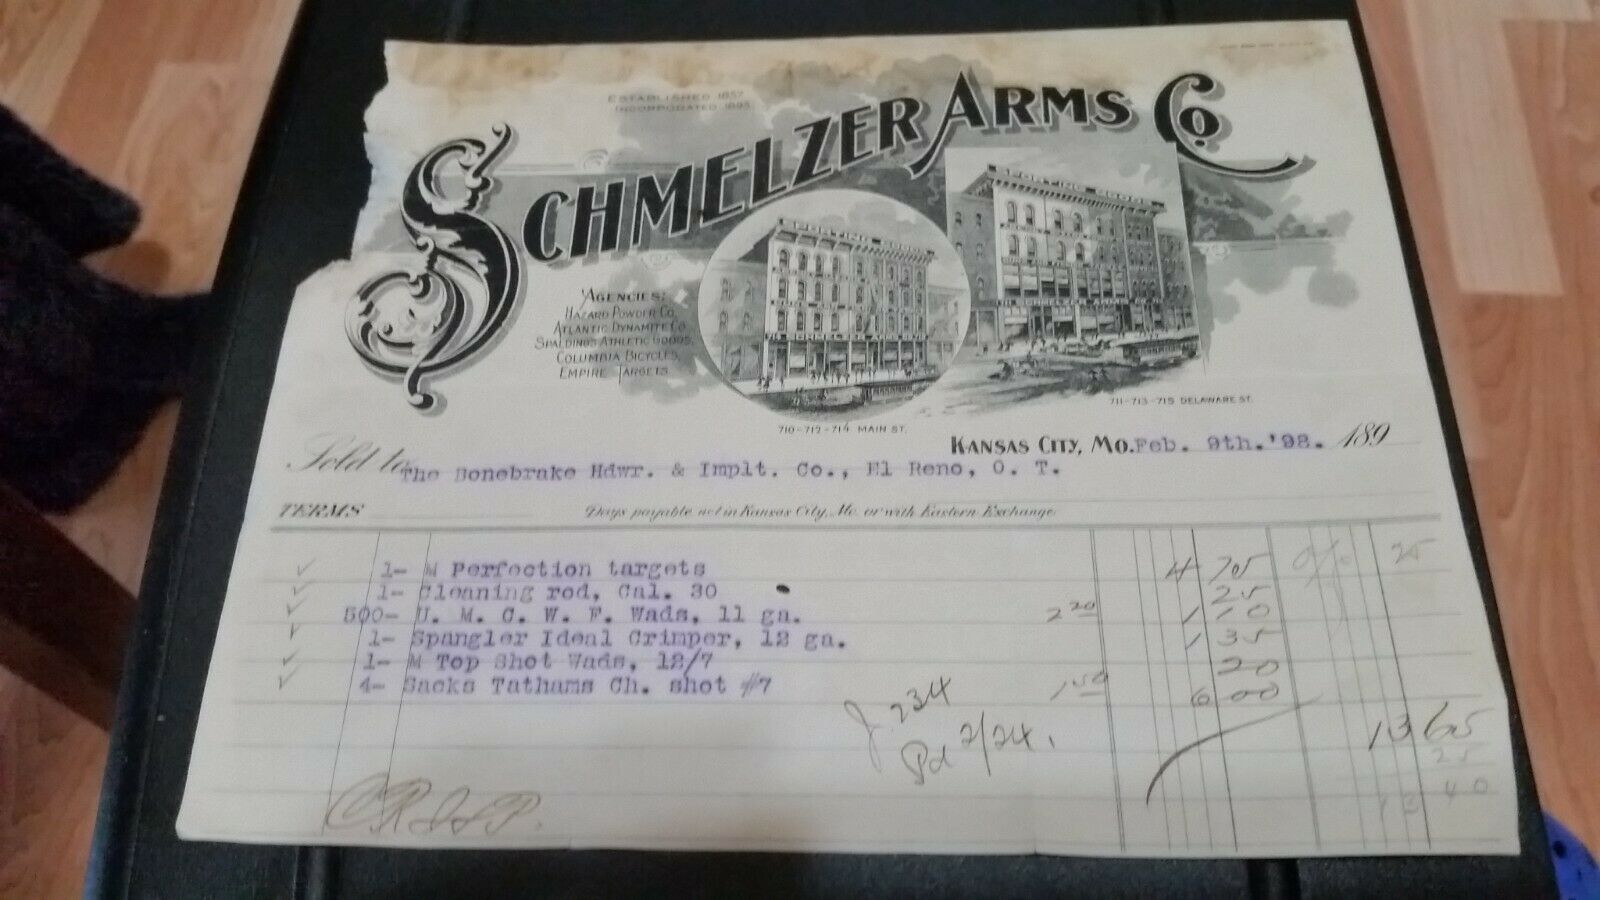 ESTABLISHED 1857
INCORPORATED 1895
SCHMELZER ARMS CO.
SPORTING GOODS
SCHMELZER ARMS CO.
SPORTING GOODS
SCHMELZER ARMS CO.
AGENCIES:
HAZARD POWDER CO.
ATLANTIC DYNAMITE CO.
SPALDINGS ATHLETIC GOODS,
COLUMBIA BICYCLES,
EMPIRE TARGETS.
710-712-714 MAIN ST.
711-713-715 DELAWARE ST.
KANSAS CITY, MO. Feb. 9th. '98. 189
Sold to The Bonebrake Hdwr. & Implt. Co., El Reno, O. T.
TERMS Days payable net in Kansas City, Mo. or with Eastern Exchange
1- M Perfection targets 4 75 25
1- Cleaning rod, Cal. 30 25
500- U. M. C. W. F. Wads, 11 ga. 2 20 1 10
1- Spangler Ideal Crimper, 12 ga. 1 35
1- M Top Shot Wads, 12/7 20
4- Sacks Tathams Ch. shot #7 1 50 6 00
J. 234
Pd 2/24.
13 65
25
13 40